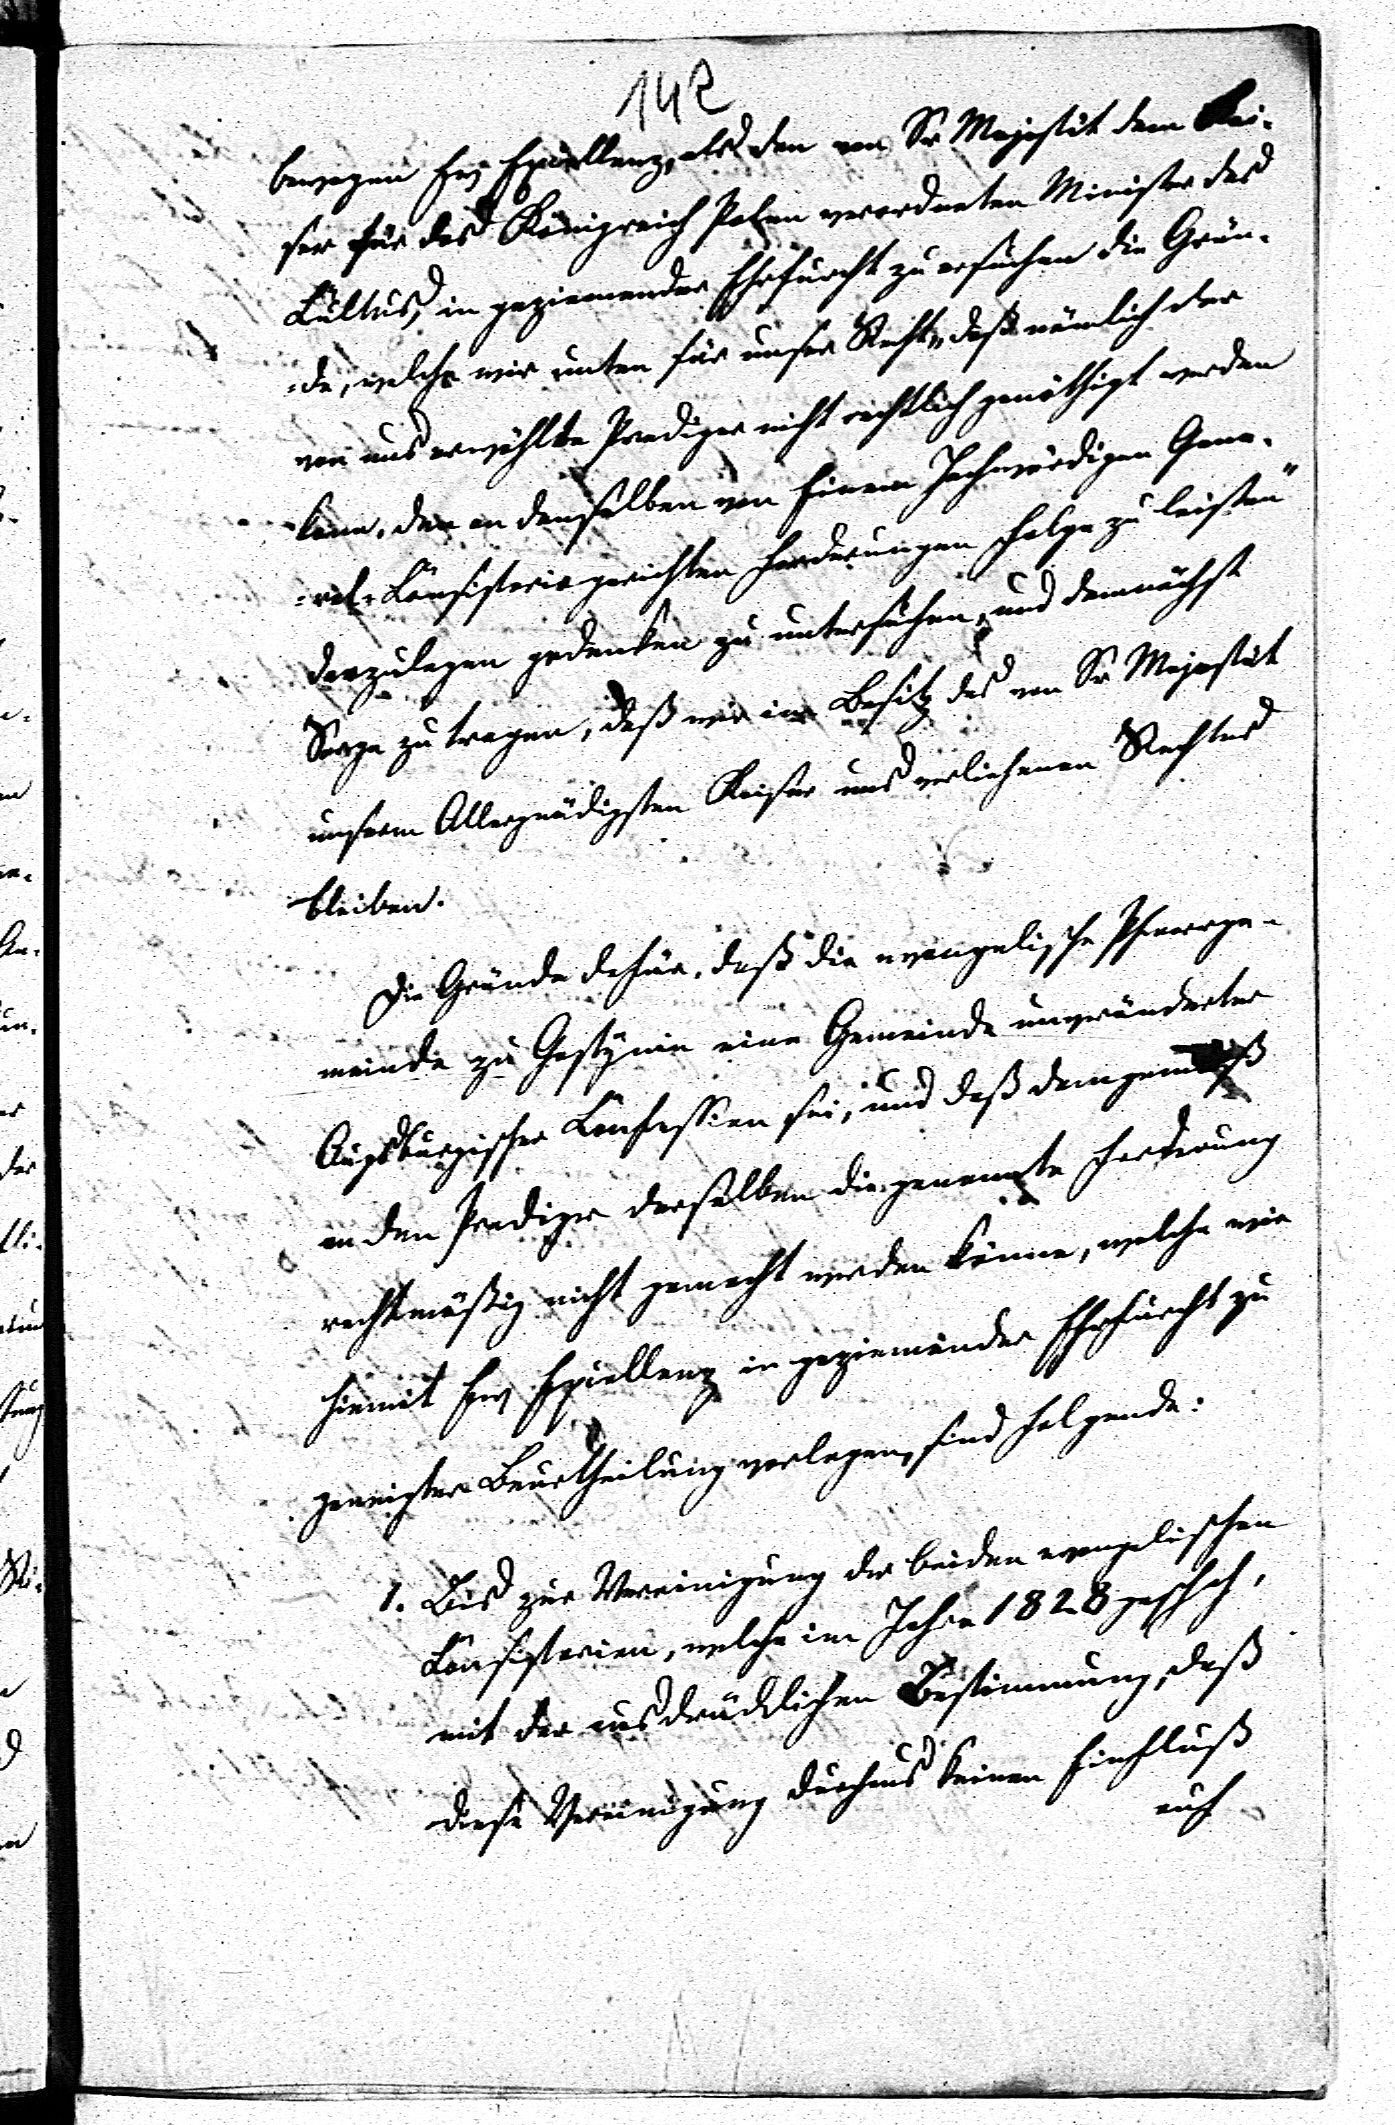 142
bewogen Ew. Excellenz, als den von Sr Majestät dem Kai-
ser für das Königreich Polen verordneten Minister des
Cultus, in geziemender Ehrfurcht zu ersuchen die Grün-
-de, welche wir unten für unser Recht, „daß nämlich der
von uns erwählte Prediger nicht rechtlich genöthigt werden
kann, den an denselben von Einem Hochwürdigen Gene-
-ral-Consistorio gerichten Forderungen Folge zu leisten“
darzulegen gedenken zu untersuchen, und demnächst
Sorge zu tragen, daß wir im Besitz des von Sr Majestät
unserm Allergnädigsten Kaiser uns verliehenen Rechtes
bleiben.
Die Gründe dafür, daß die evangelische Pfarrge-
meinde zu Gostynin eine Gemeinde unveränderter
Augsburgischer Confession sei, und daß demgemäß
an den Prediger derselben die genannte Forderung
rechtmäßig nicht gemacht werden könne, welche wir
hiemit Ew. Excellenz in geziemender Ehrfurcht zu
geneigter Beurtheilung vorlegen, sind folgende:
1. Bis zur Vereinigung der beiden evangelischen
Consistorien, welche im Jahre 1828 geschah,
mit der ausdrücklichen Bestimmung, daß
diese Vereinigung durchaus keinen Einfluß
auf